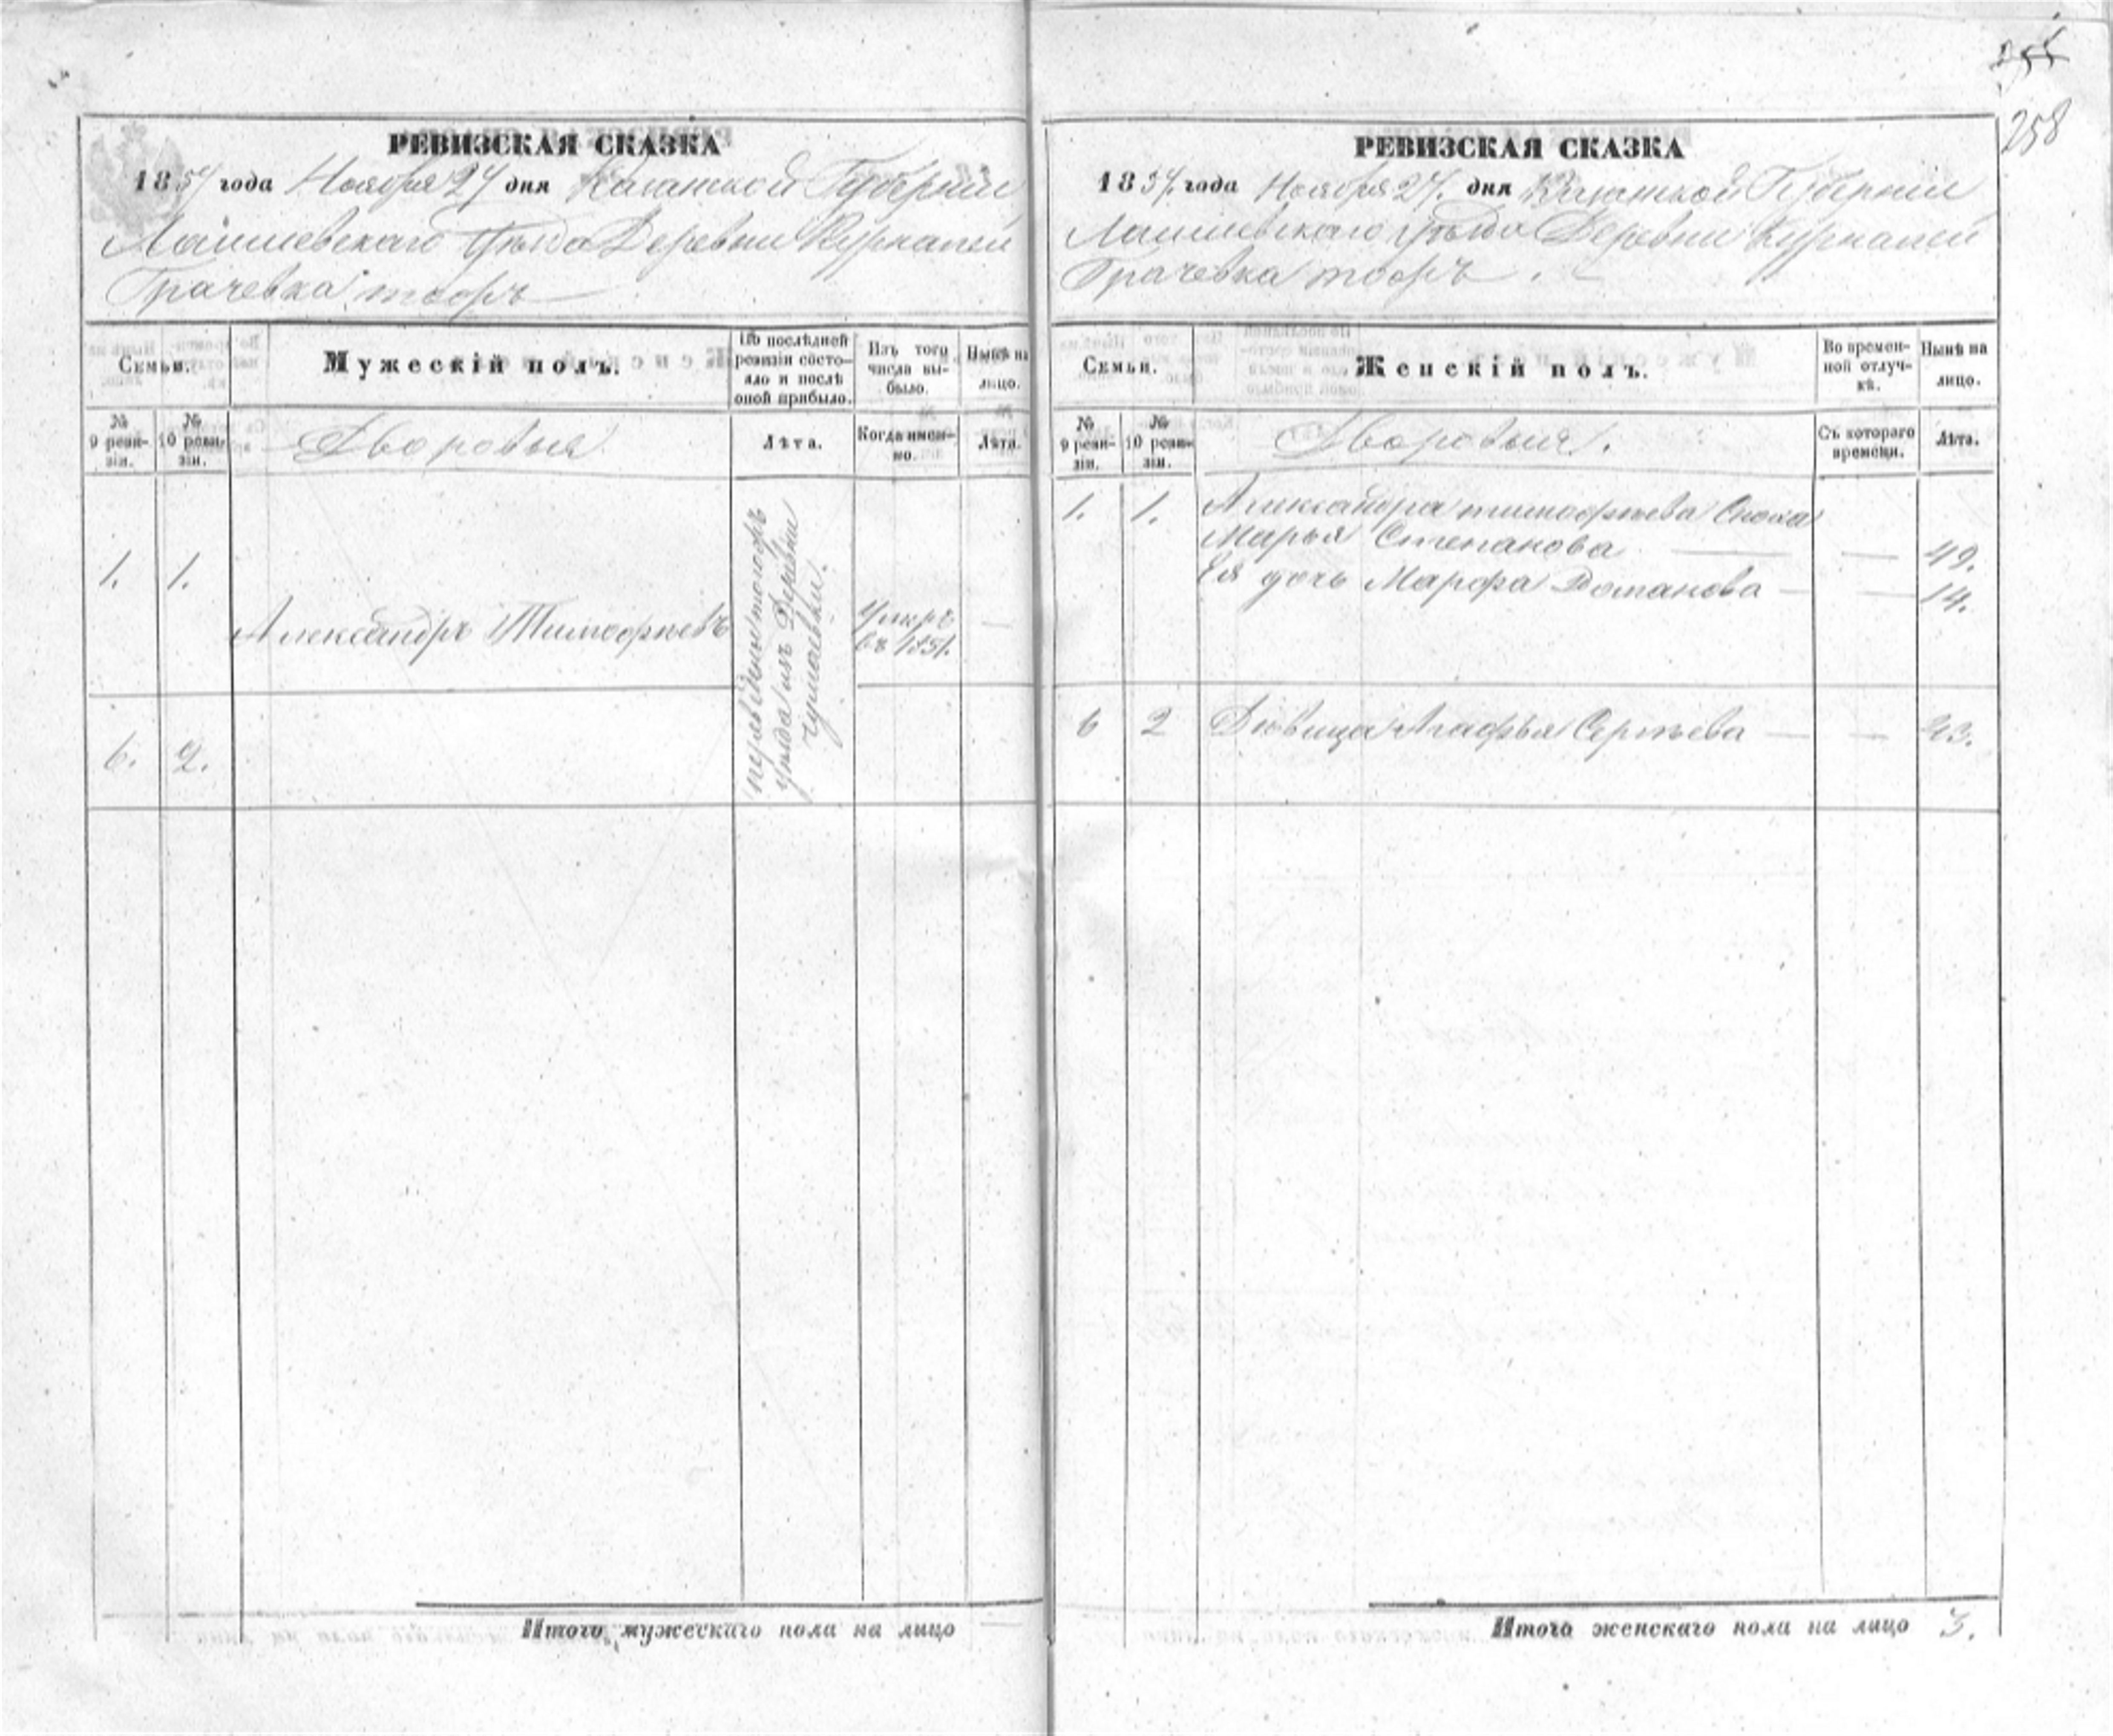 255
258
РЕВИЗСКАЯ СКАЗКА
1857 года Ноября 27 дня Казанской Губернии
Лаишевскаго Уѣзда Деревни Курканей
Грачевка тоже
Семьи.
Мужескій полъ.
По послѣдней ревизіи состояло и послѣ оной прибыло.
Изъ того числа выбыло.
Нынѣ на лицо.
№ 9 ревизіи.
№ 10 ревизіи.
Дворовыя
Лѣта.
Когда именно.
Лѣта.
1. 1.
Александръ Тимофѣевъ
Умеръ
въ 1851.
—
переведены тогожъ
уѣзда изъ Деревни
6. 2.
Итого мужескаго пола на лицо —
РЕВИЗСКАЯ СКАЗКА
1857. года Ноября 27. дня Казанской Губерніи
Лаишевскаго уѣзда Деревни Курканей
Грачевка тоже.
Семьи.
Женскій полъ.
Во временной отлучкѣ.
Нынѣ на лицо.
№ 9 ревизіи.
№ 10 ревизіи.
Дворовыя.
Съ котораго времени.
Лѣта.
1. 1. Александра тимофѣева Сноха
Марья Степанова — — 49.
Ея дочь Марфа Романова — — 14.
6 2 Дѣвица Агафья Сергѣева — — 23.
Итого женскаго пола на лицо 3.